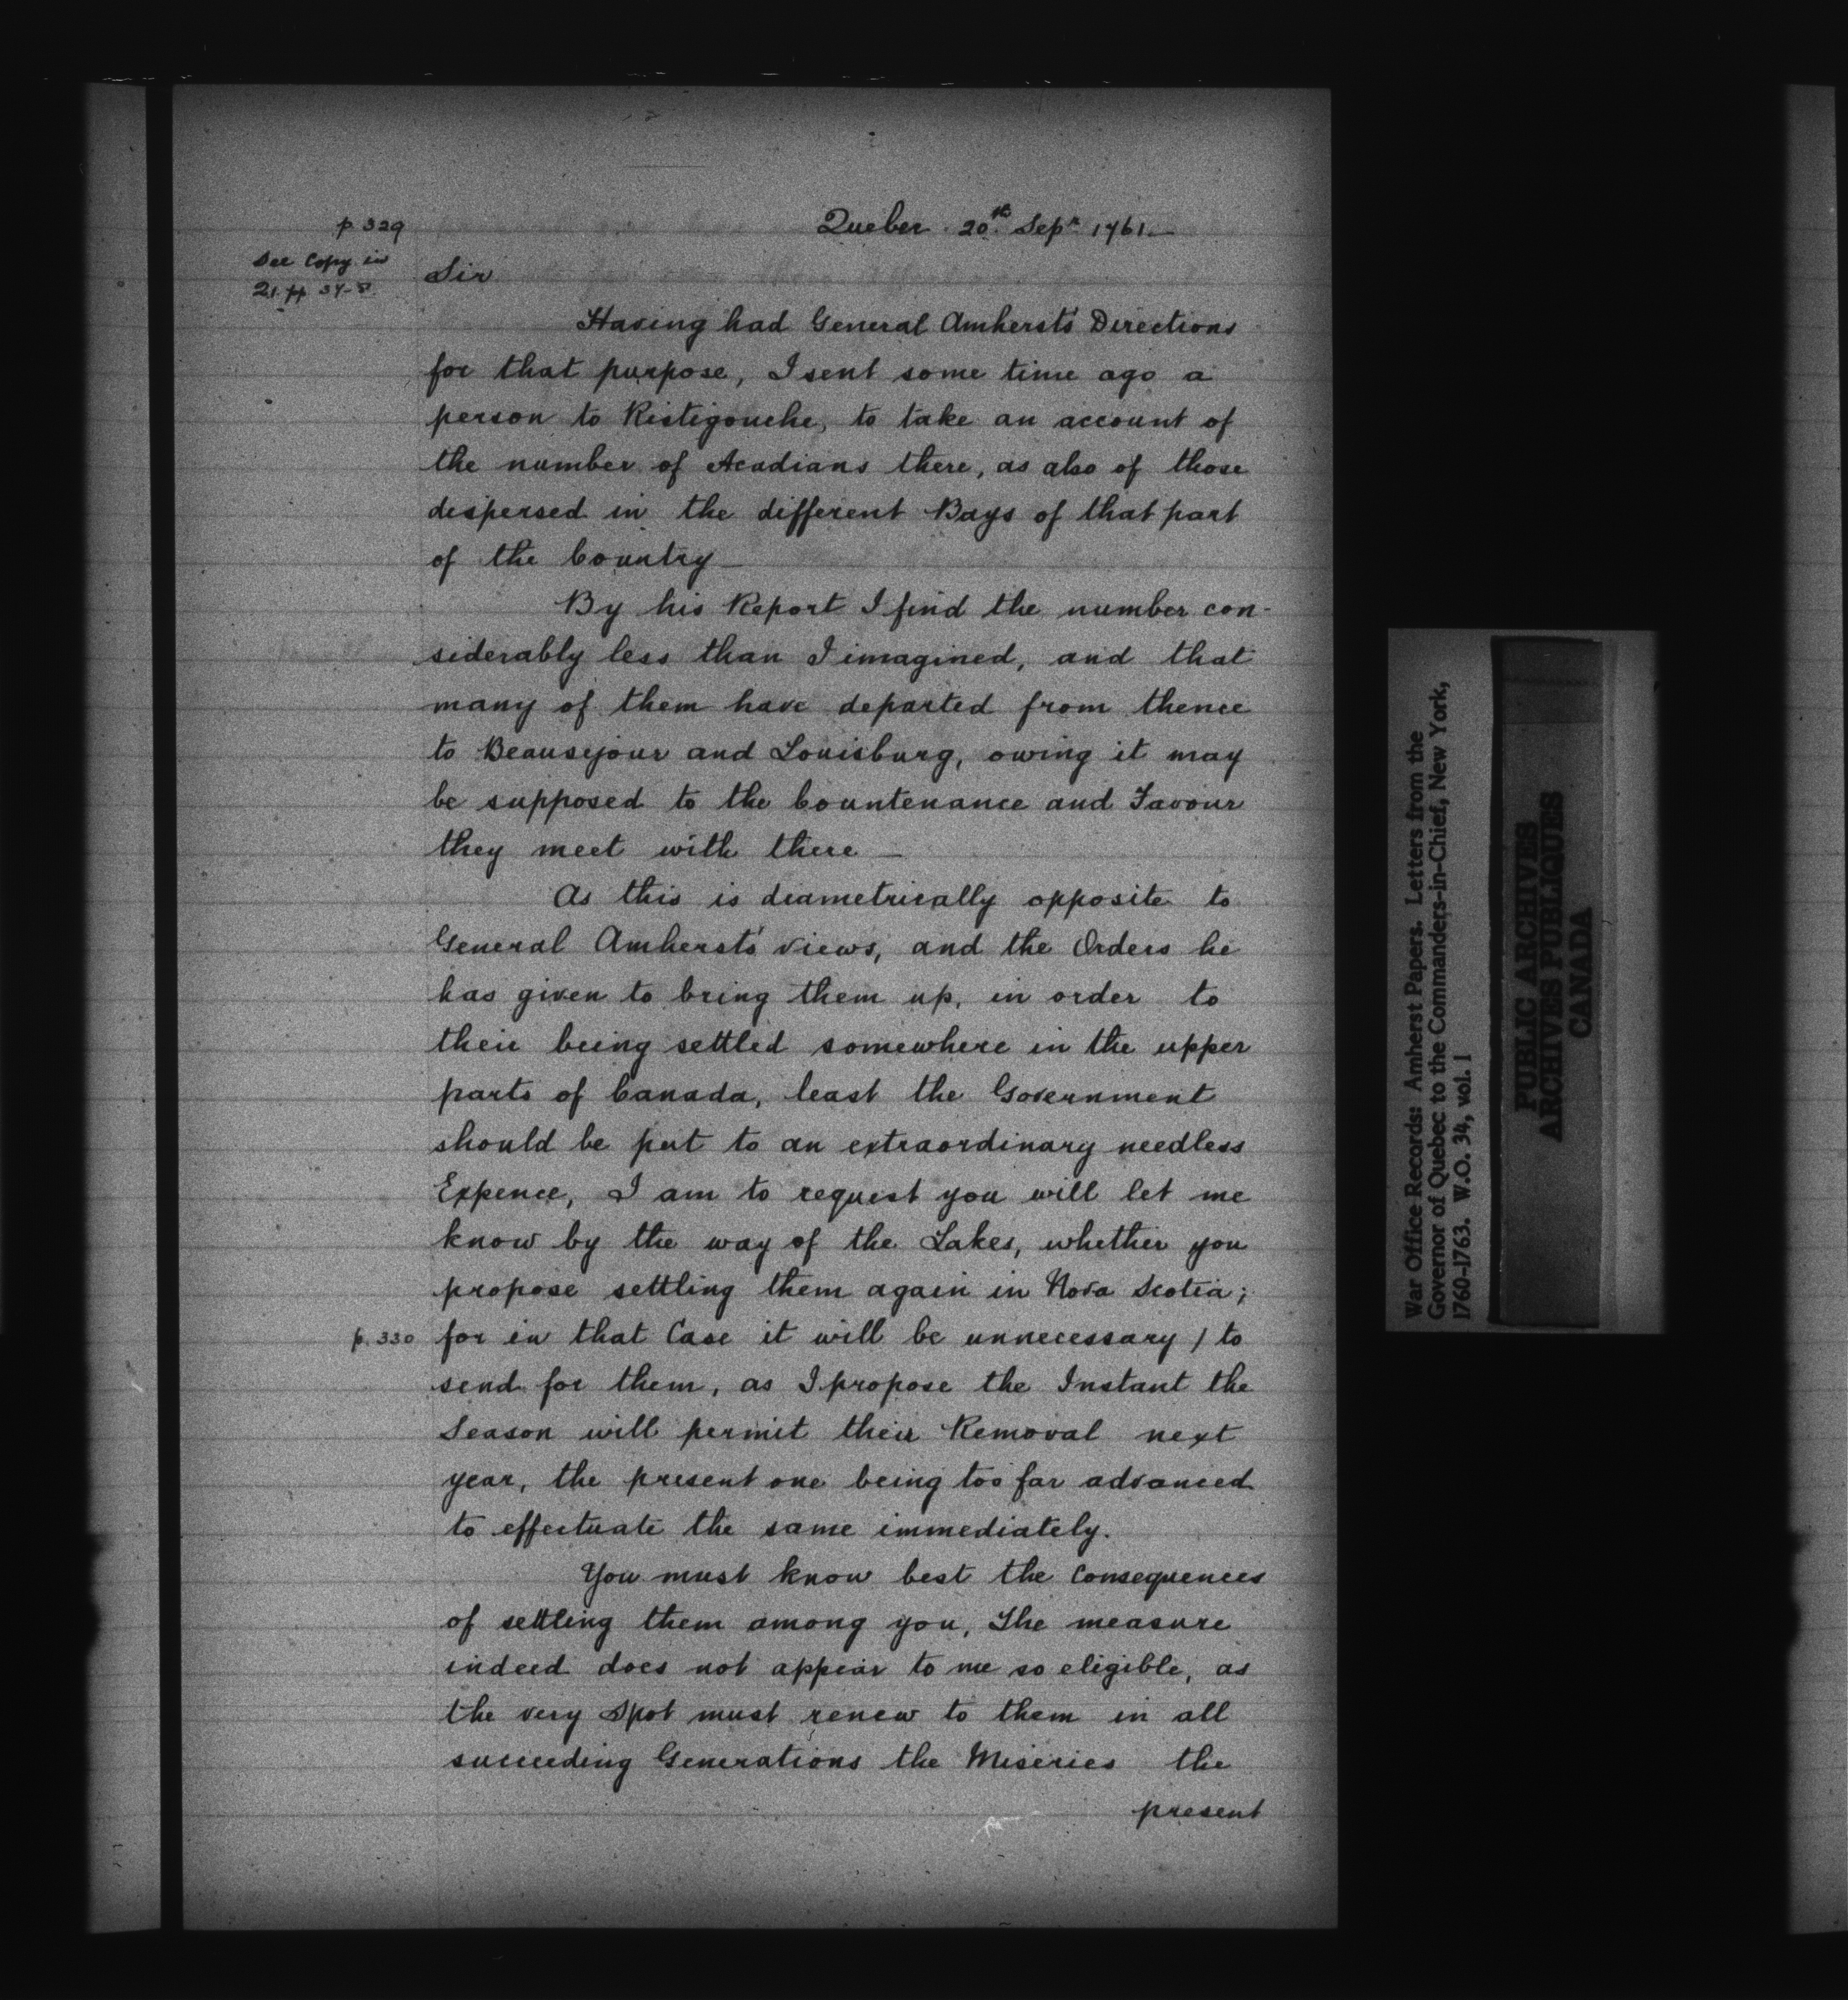 p. 329
Quebec 20th Sepr 1761.—
See Copy in
21. pp
Sir
Having had General Amherst's Directions
for that purpose, I sent some time ago a
person to Ristigouche, to take an account of
the number of Acadians there, as also of those
dispersed in the different Bays of that part
of the Country—
By his Report I find the number con-
siderably less than I imagined, and that
many of them have departed from thence
to Beausejour and Louisburg, owing it may
be supposed to the Countenance and Favour
they meet with there—
As this is diametrically opposite to
General Amherst's views, and the Orders he
has given to bring them up, in order to
their being settled somewhere in the upper
parts of Canada, least the Government
should be put to an extraordinary needless
Expence, I am to request you will let me
know by the way of the Lakes, whether you
propose settling them again in Nova Scotia;
p. 330 for in that Case it will be unnecessary / to
send for them, as I propose the Instant the
Season will permit their Removal next
year, the present one being too far advanced
to effectuate the same immediately.
You must know best the Consequences
of settling them among you, The measure
indeed does not appear to me so eligible, as
the very Spot must renew to them in all
succeeding Generations the Miseries the
present
War Office Records: Amherst Papers. Letters from the
Governor of Quebec to the Commanders-in-Chief, New York,
1760-1763. W.O. 34, vol. 1
PUBLIC ARCHIVES
ARCHIVES PUBLIQUES
CANADA